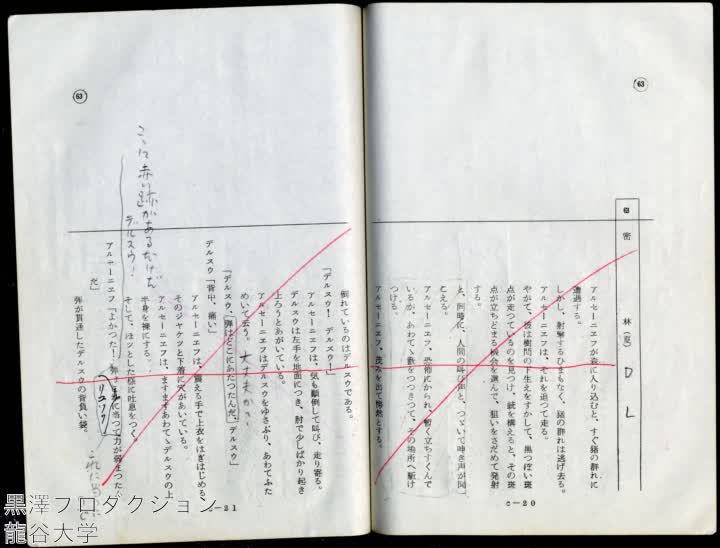 63
63 密 林(夏) D L
アルセーニエフが森に入り込むと、すぐ猪の群れに
遭遇する。
しかし、射撃するひまもなく、猪の群れは逃げ去る。
アルセーニエフは、それを追つて走る。
やがて、彼は樹間の下生えをすかして、黒つぽい斑
点が走つているのを見つけ、銃を構えると、その斑
点が立ちどまる機会を選んで、狙いをさだめて発射
する。
と、同時に、人間の叫び声と、つゞいて呻き声が聞
こえる。
アルセーニエフ、恐怖にかられ、暫く立ちすくんで
いるが、あわてゝ藪をつつきつて、その場所へ駆け
つける。
アルセーニエフ、茂みを出て愕然とする。
C-20
63
倒れているのはデルスウである。
「デルスウ! デルスウー!」
アルセーニエフは、気も顛倒して叫び、走り寄る。
デルスウは左手を地面につき、肘で少しばかり起き
上ろうとあがいている。
アルセーニエフはデルスウをゆさぶり、あわてふた
めいて云う。
大丈夫か、
「デルスウ、弾はどこにあたつたんだ、デルスウ」
デルスウ「背中、痛い」
アルセーニエフは、震える手で上衣をはぎはじめる。
そのジャケツと下着に穴があいている。
アルセーニエフは、ますますあわてゝデルスウの上
半身を裸にする。
そして、ほツとした様に吐息をつく。
こゝに赤い跡があるだけだ
デルスウ!
アルセーニエフ「よかつた!
当つて力が弱まつた
だ」
弾が貫通したデルスウの背負い袋。
C-21
黒澤プロダクション
龍谷大学